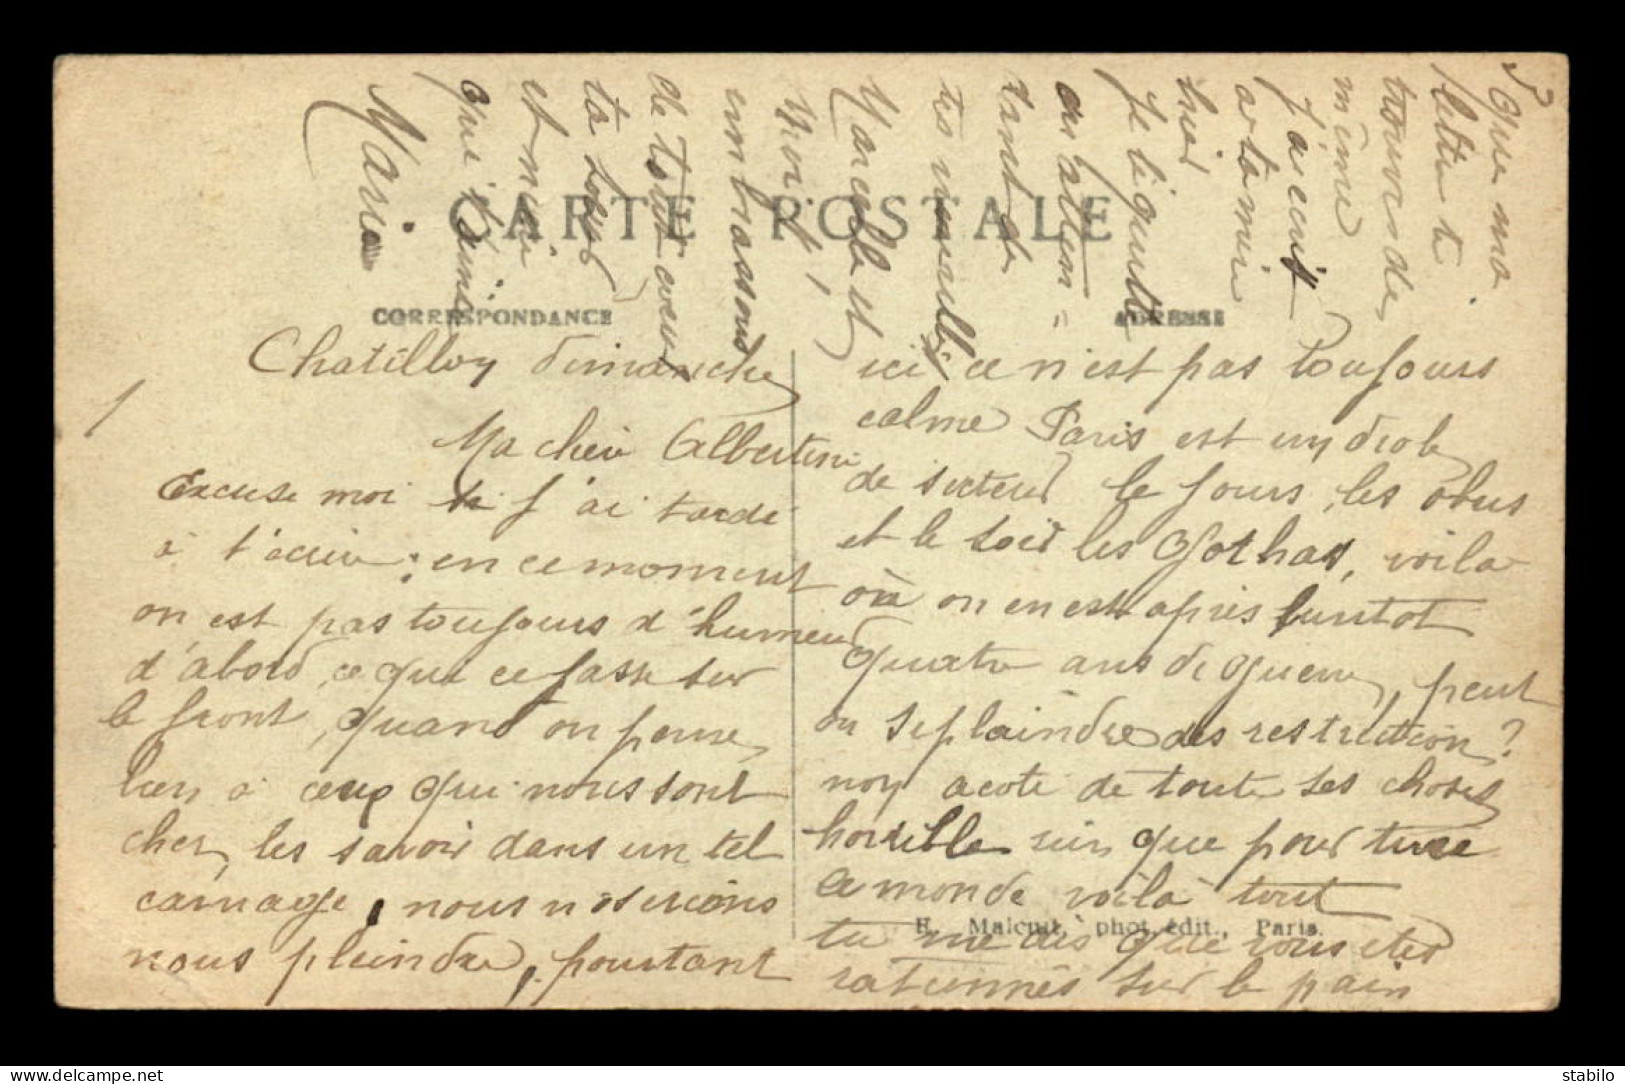 CARTE POSTALE
CORRESPONDANCE
ADRESSE
1
Chatillon dimanche
Ma chère Albertine
Excuse moi si j'ai tardé
à t'écrire : en ce moment
on est pas toujours d'humeur
d'abord, ce qui ce passe sur
le front, quand on pense
bien à ceux qui nous sont
cher, les savoir dans un tel
carnage, nous n'oserions
nous pleindre, pourtant
ici ce n'est pas toujours
calme Paris est un drole
de secteur le jours, les obus
et le soir les Gothas, voila
où on en est après bientot
quatre ans de guerre, peut
on se plaindre des restriction ?
non acoté de toute ses choses
horrible rien que pour tuée
ce monde voilà tout
tu me dis que vous etes
rationnés sur le pain
E. Malcuit, phot. édit., Paris.
3
que ma
lettre te
trouve de
même
J'ai écrit
hier
Je
tes
Marcelle et
moi,
embrassons
de tout coeur
ta soeur
et
qui t'aime
Marie